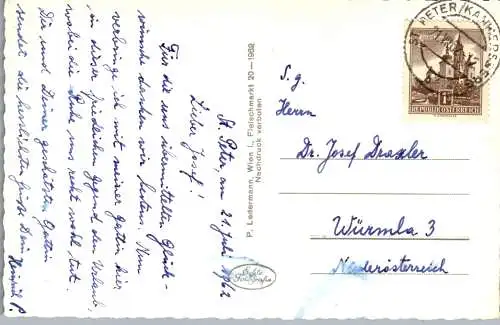 St. Peter, am 21. Juli 1962
Lieber Josef!
Für die uns übermittelten Glück-
wünsche danken wir bestens. Nun
verbringe ich mit meiner Gattin hier
in dieser friedlichen Gegend den Urlaub,
wobei die Ruhe uns recht wohl tut.
Dir und Deiner geschätzten Gattin
sendet die herzlichsten Grüße Dein
Heinrich P.
P. Ledermann, Wien I., Fleischmarkt 20 — 1962
Nachdruck verboten
Echte
Fotografie
ST. PETER/KAMMERSB
REPUBLIK ÖSTERREICH
S. g.
Herrn
Dr. Josef Draxler
Würmla 3
Niederösterreich